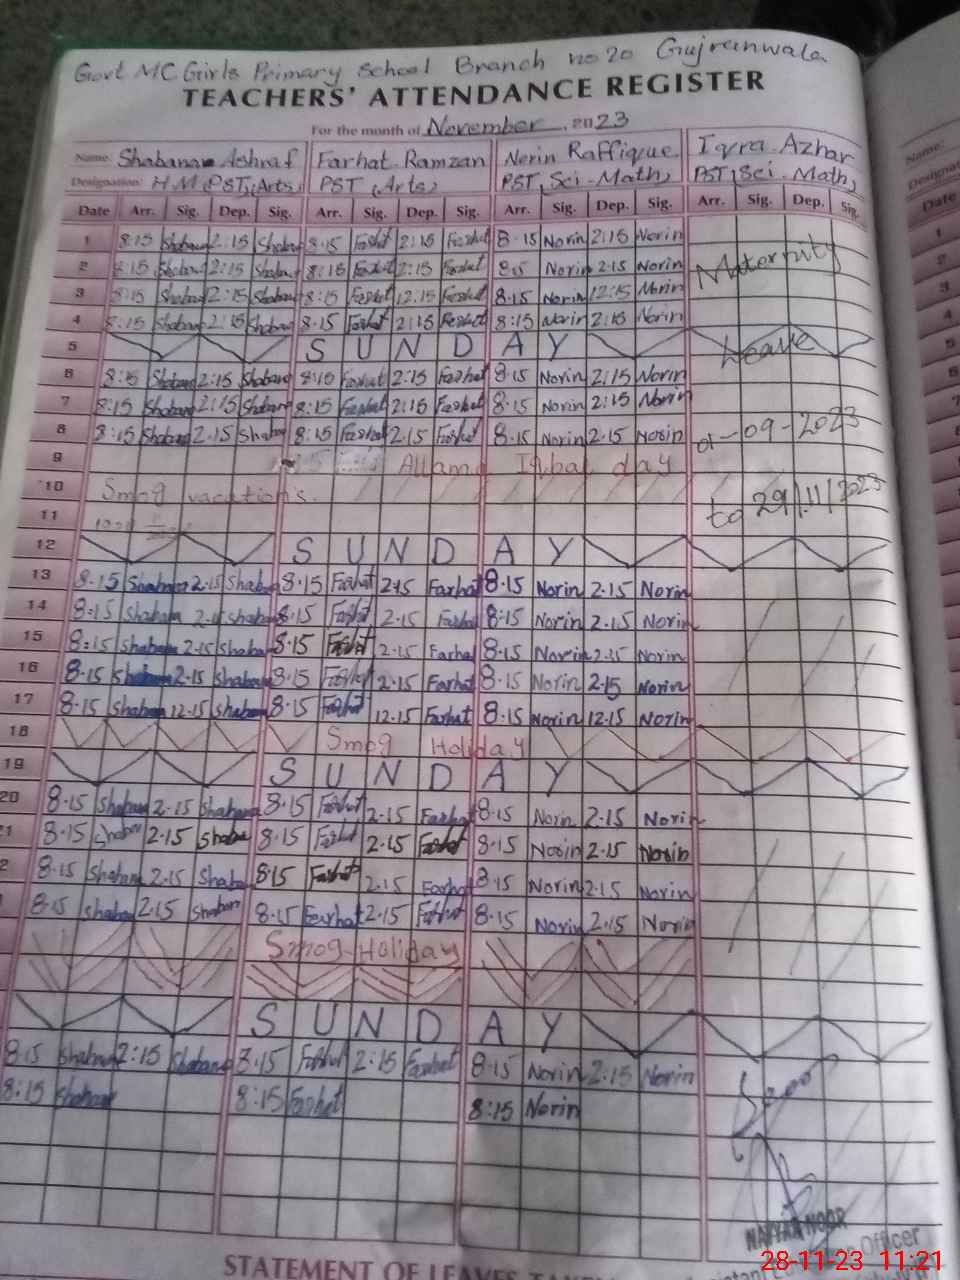 Govt MC Girls Primary School Branch no 20 Gujranwala
TEACHERS' ATTENDANCE REGISTER
For the month of November, 2023
Name: Shabanam Ashraf Farhat Ramzan Norin Raffique Iqra Azhar
Designation: H.M (PST, Arts) PST (Arts) PST, Sci-Math) PST, Sci-Math)
Date Arr. Sig. Dep. Sig. Arr. Sig. Dep. Sig. Arr. Sig. Dep. Sig. Arr. Sig. Dep. Sig.
1 8:15 Shabanam 2:15 Shabanam 8:15 Farhat 2:15 Farhat 8:15 Norin 2:15 Norin
2 8:15 Shabanam 2:15 Shabanam 8:15 Farhat 2:15 Farhat 8:15 Norin 2:15 Norin Maternity
3 8:15 Shabanam 12:15 Shabanam 8:15 Farhat 12:15 Farhat 8:15 Norin 12:15 Norin
4 8:15 Shabanam 2:15 Shabanam 8:15 Farhat 2:15 Farhat 8:15 Norin 2:15 Norin
5 SUNDAY Leave
6 8:15 Shabanam 2:15 Shabanam 8:15 Farhat 2:15 Farhat 8:15 Norin 2:15 Norin
7 8:15 Shabanam 2:15 Shabanam 8:15 Farhat 2:15 Farhat 8:15 Norin 2:15 Norin
8 8:15 Shabanam 2.15 Shabanam 8:15 Farhat 2.15 Farhat 8.15 Norin 2.15 Norin 01-09-2023
9 Allama Iqbal day
10 Smog vacations. to 29/11/2023
11
12 SUNDAY
13 8.15 Shabanam 2.15 Shabanam 8.15 Farhat 2.15 Farhat 8.15 Norin 2.15 Norin
14 8:15 Shabanam 2.15 Shabanam 8.15 Farhat 2.15 Farhat 8.15 Norin 2.15 Norin
15 8:15 Shabanam 2.15 Shabanam 8.15 Farhat 2.15 Farhat 8.15 Norin 2.15 Norin
16 8.15 Shabanam 2.15 Shabanam 8.15 Farhat 2.15 Farhat 8.15 Norin 2.15 Norin
17 8.15 Shabanam 12.15 Shabanam 8.15 Farhat 12.15 Farhat 8.15 Norin 12.15 Norin
18 Smog Holiday
19 SUNDAY
20 8.15 Shabanam 2.15 Shabanam 8.15 Farhat 2.15 Farhat 8.15 Norin 2.15 Norin
21 8.15 Shabanam 2.15 Shabanam 8.15 Farhat 2.15 Farhat 8.15 Norin 2.15 Norin
2 8.15 Shabanam 2.15 Shabanam 8.15 Farhat 2.15 Farhat 8.15 Norin 2.15 Norin
8.15 Shabanam 2.15 Shabanam 8.15 Farhat 2.15 Farhat 8.15 Norin 2.15 Norin
Smog Holiday
SUNDAY
8.15 Shabanam 2:15 Shabanam 8.15 Farhat 2:15 Farhat 8.15 Norin 2:15 Norin
8:15 Shabanam 8:15 Farhat 8:15 Norin
NAYYAR NOOR
Officer
STATEMENT OF LEAVES
28-11-23 11:21
Name:
Date
1
2
3
4
5
6